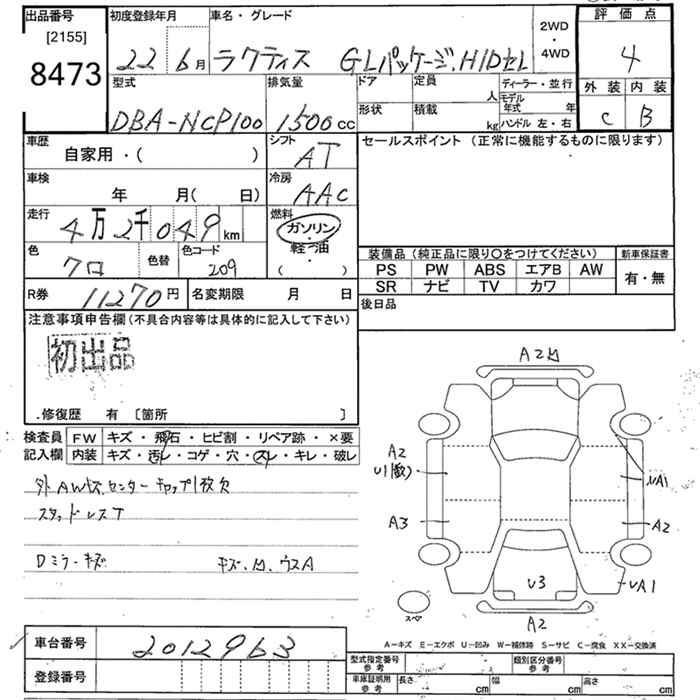 出品番号
[2155]
8473
初度登録年月
22 6月
車名・グレード
ラクティス GLパッケージ.HIDセレ
2WD
・
4WD
評価点
4
外装 内装
C B
型式
DBA-NCP100
排気量
1500cc
ドア
定員
人
形状
積載
kg
ディーラー・並行
モデル年式 年
ハンドル 左・右
車歴
自家用・( )
シフト
AT
セールスポイント (正常に機能するものに限ります)
車検
年 月( 日)
冷房
AAC
走行
4万2千049km
燃料
ガソリン
・
軽油
( )
色
クロ
色替
色コード
209
装備品(純正品に限り○をつけてください)
新車保証書
PS PW ABS エアB AW
有・無
SR ナビ TV カワ
R券
11270円
名変期限 月 日
後日品
注意事項申告欄(不具合内容等は具体的に記入して下さい)
初出品
.修復歴 有 [箇所 ]
検査員
記入欄
FW キズ・飛石・ヒビ割・リペア跡・×要
内装 キズ・汚レ・コゲ・穴・スレ・キレ・破レ
外AWキズ.センターキャップ1枚欠
スタッドレスT
Dミラーキズ
キズ.凹.ウスA
A2凹
A2
U1(数)
A3
UA1
A2
U3
UA1
A2
スペア
A-キズ E-エクボ U-凹み W-補修跡 S-サビ C-腐食 XX-交換済
車台番号
2012963
登録番号
型式指定番号
参考
類別区分番号
参考
車庫証明用
参考
長さ cm
幅 cm
高さ cm